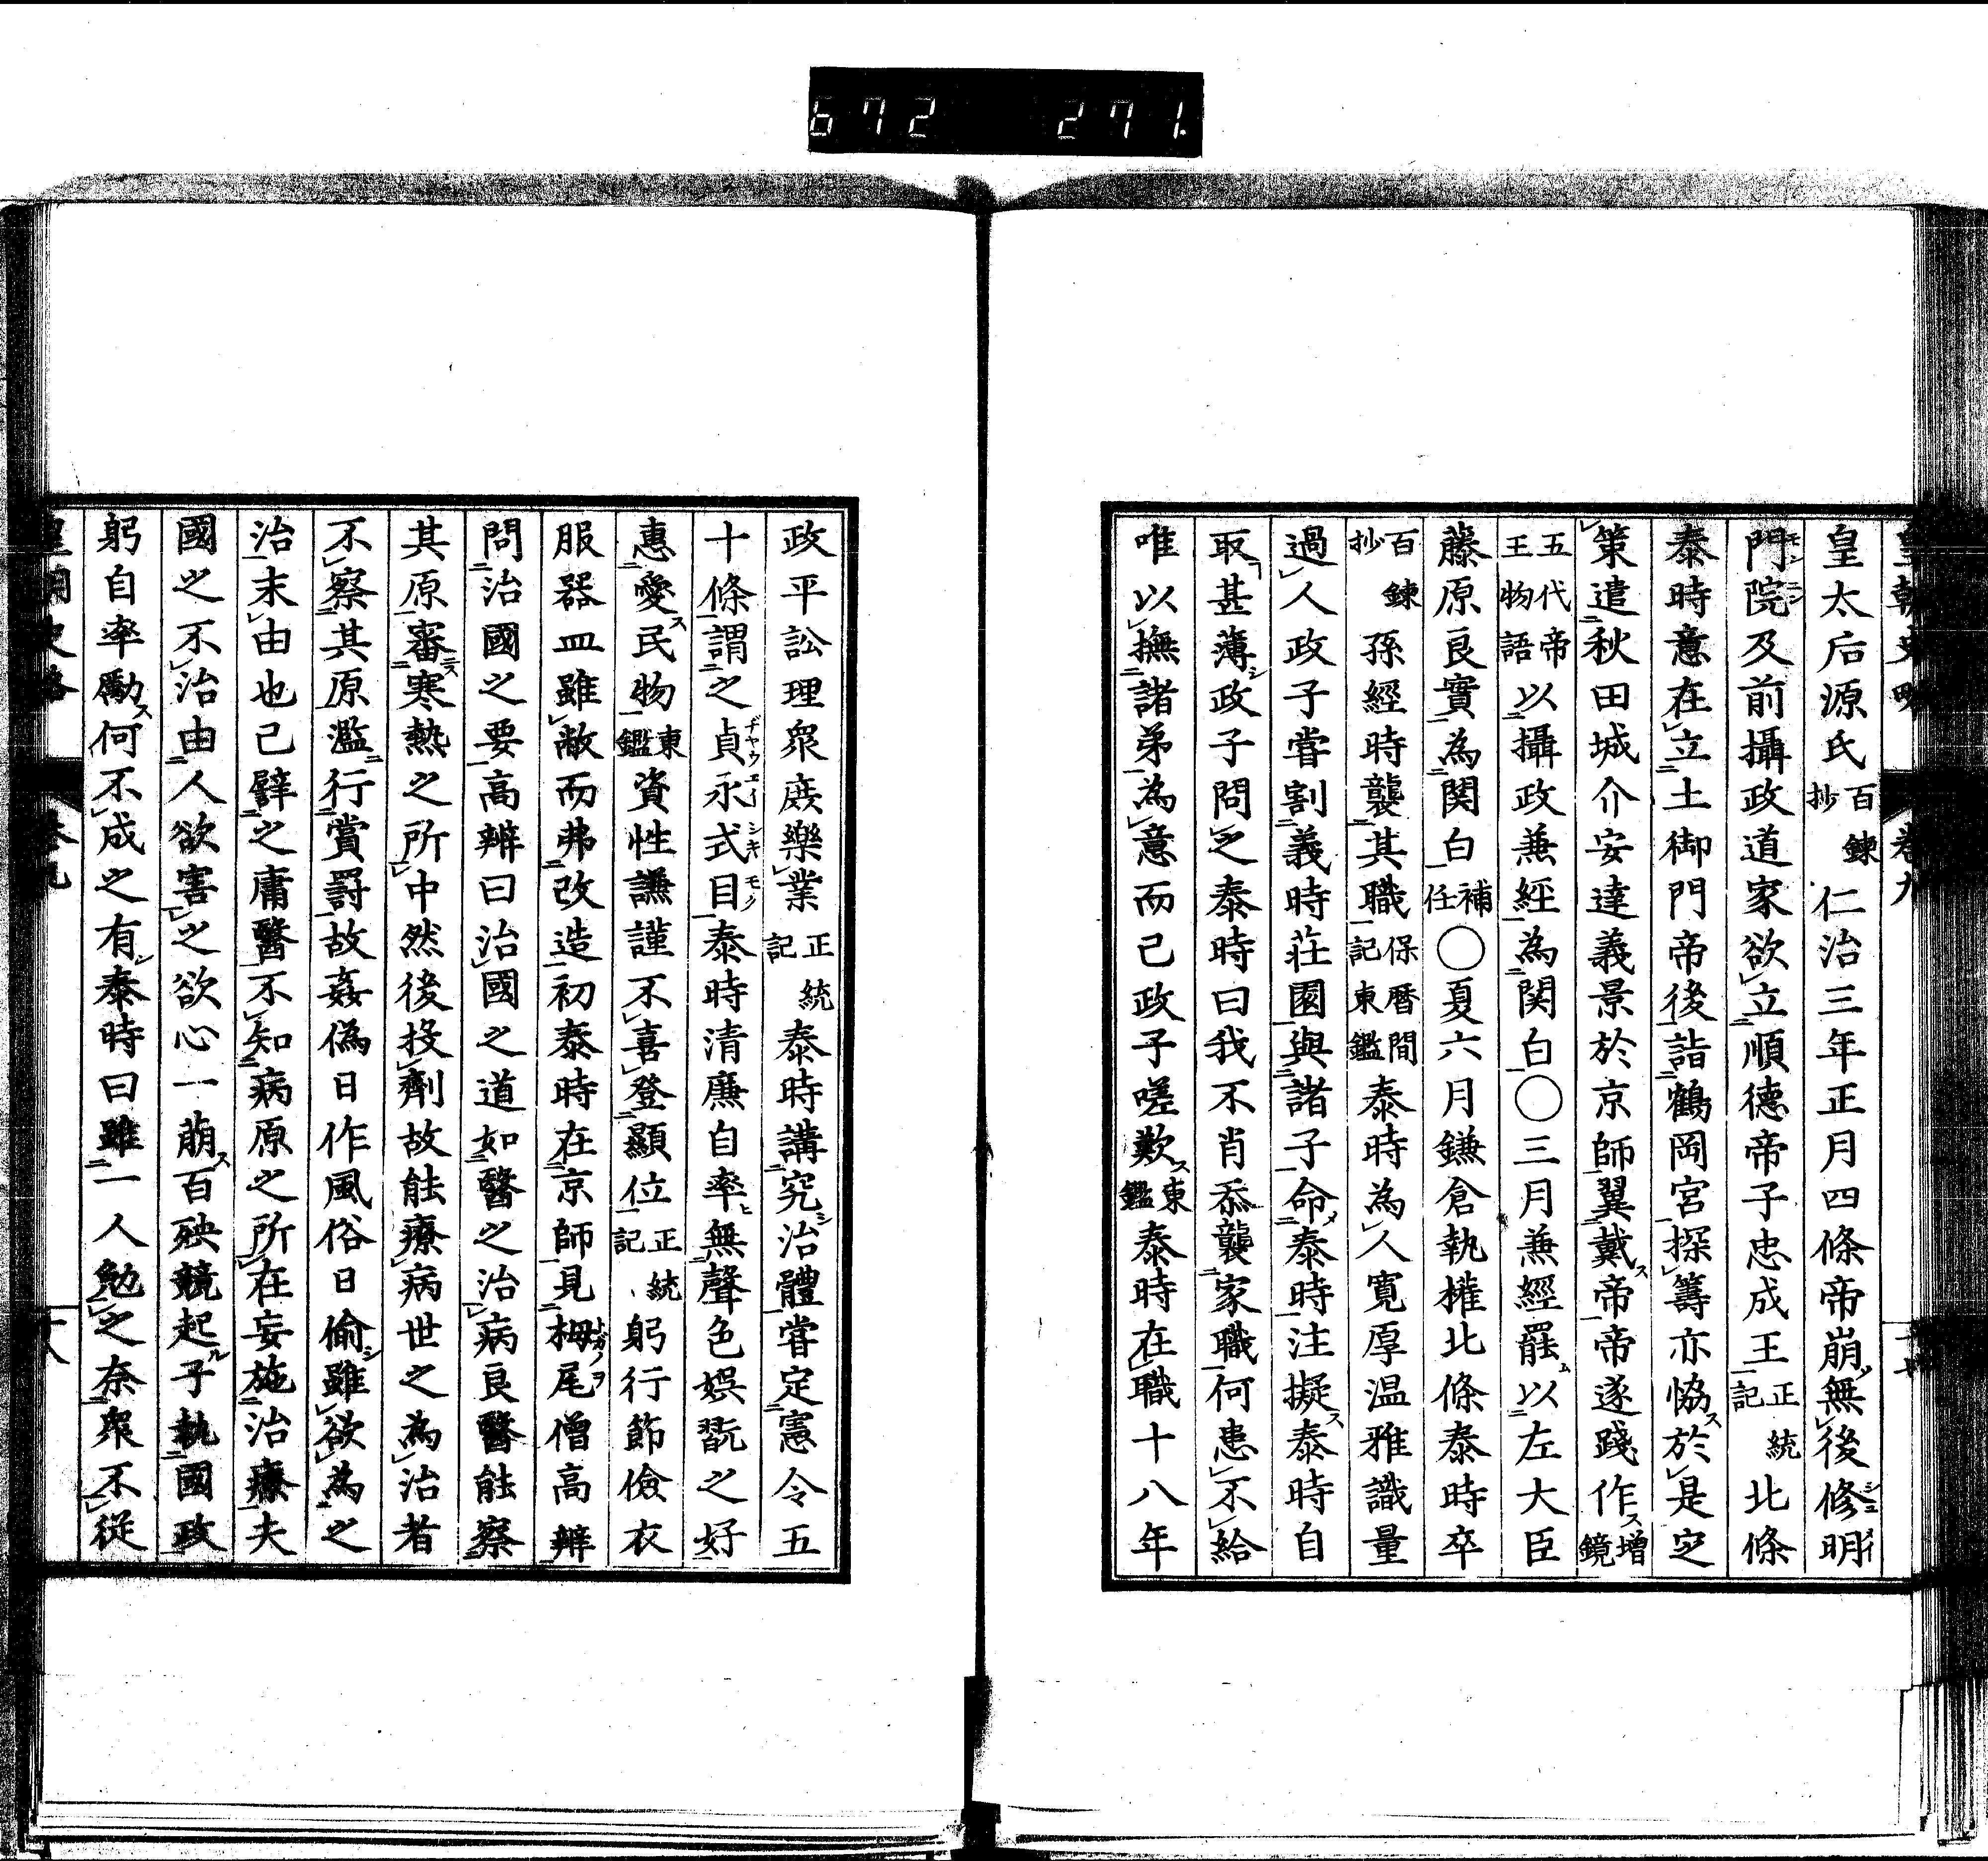 672 271.
皇朝史略 卷九
皇太后源氏百鍊抄仁治三年正月四條帝崩無後修明
門院及前攝政道家欲立順德帝子忠成王正統記北條
泰時意在立土御門帝後詣鶴岡宮探籌亦恊於是定
策遣秋田城介安達義景於京師翼戴帝帝遂踐作增鏡
五代帝王物語以攝政兼經為関白〇三月兼經罷以左大臣
藤原良實為関白補任〇夏六月鎌倉執權北條泰時卒
百鍊抄孫經時襲其職保曆間記東鑑泰時為人寛厚温雅識量
過人政子嘗割義時莊園與諸子命泰時注擬泰時自
取甚薄政子問之泰時曰我不肖忝襲家職何患不給
唯以撫諸弟為意而已政子嗟歎東鑑泰時在職十八年
政平訟理衆庶樂業正統記泰時講究治體嘗定憲令五
十條謂之貞永式目泰時清廉自率無聲色娯翫之好
惠愛民物東鑑資性謙謹不喜登顯位正統記躬行節儉衣
服器皿雖敝而弗改造初泰時在京師見栂尾僧高辨
問治國之要高辨曰治國之道如醫之治病良醫能察
其原審寒熱之所中然後投劑故能療病世之為治者
不察其原濫行賞罰故姦僞日作風俗日偷雖欲為之
治末由也已譬之庸醫不知病原之所在妄施治療夫
國之不治由人欲害之欲心一萠百殃競起子執國政
躬自率勵何不成之有泰時曰雖一人勉之奈衆不從
皇朝史略 卷九 十八